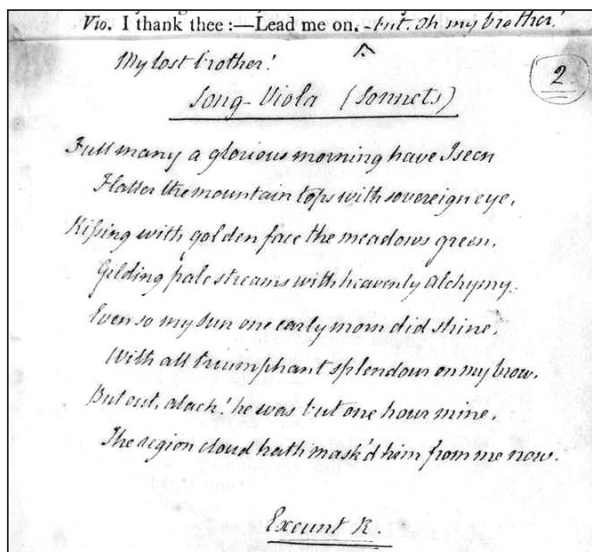 Vio. I thank thee:—Lead me on. - but. Oh my brother!
My lost brother!
2
Song - Viola (Sonnets)
Full many a glorious morning have I seen
Flatter the mountain tops with sovereign eye,
Kissing with golden face the meadows green,
Gilding pale streams with heavenly alchymy.
Even so my sun one early morn did shine,
With all triumphant splendour on my brow,
But out, alack! he was but one hour mine,
The region cloud hath mask'd him from me now.
Exeunt R.